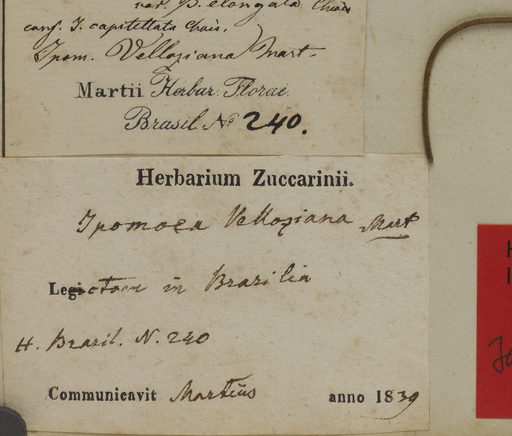 var. β. elongata Chois
conf. J. capitellata Chois.
Ipom. Velloziana Mart.
Martii Herbar. Florae
Brasil. No 240.
Herbarium Zuccarinii.
Ipomoea Velloziana Mart
in Brazilia
H. Brazil. N. 240
Communicavit Martius anno 1839